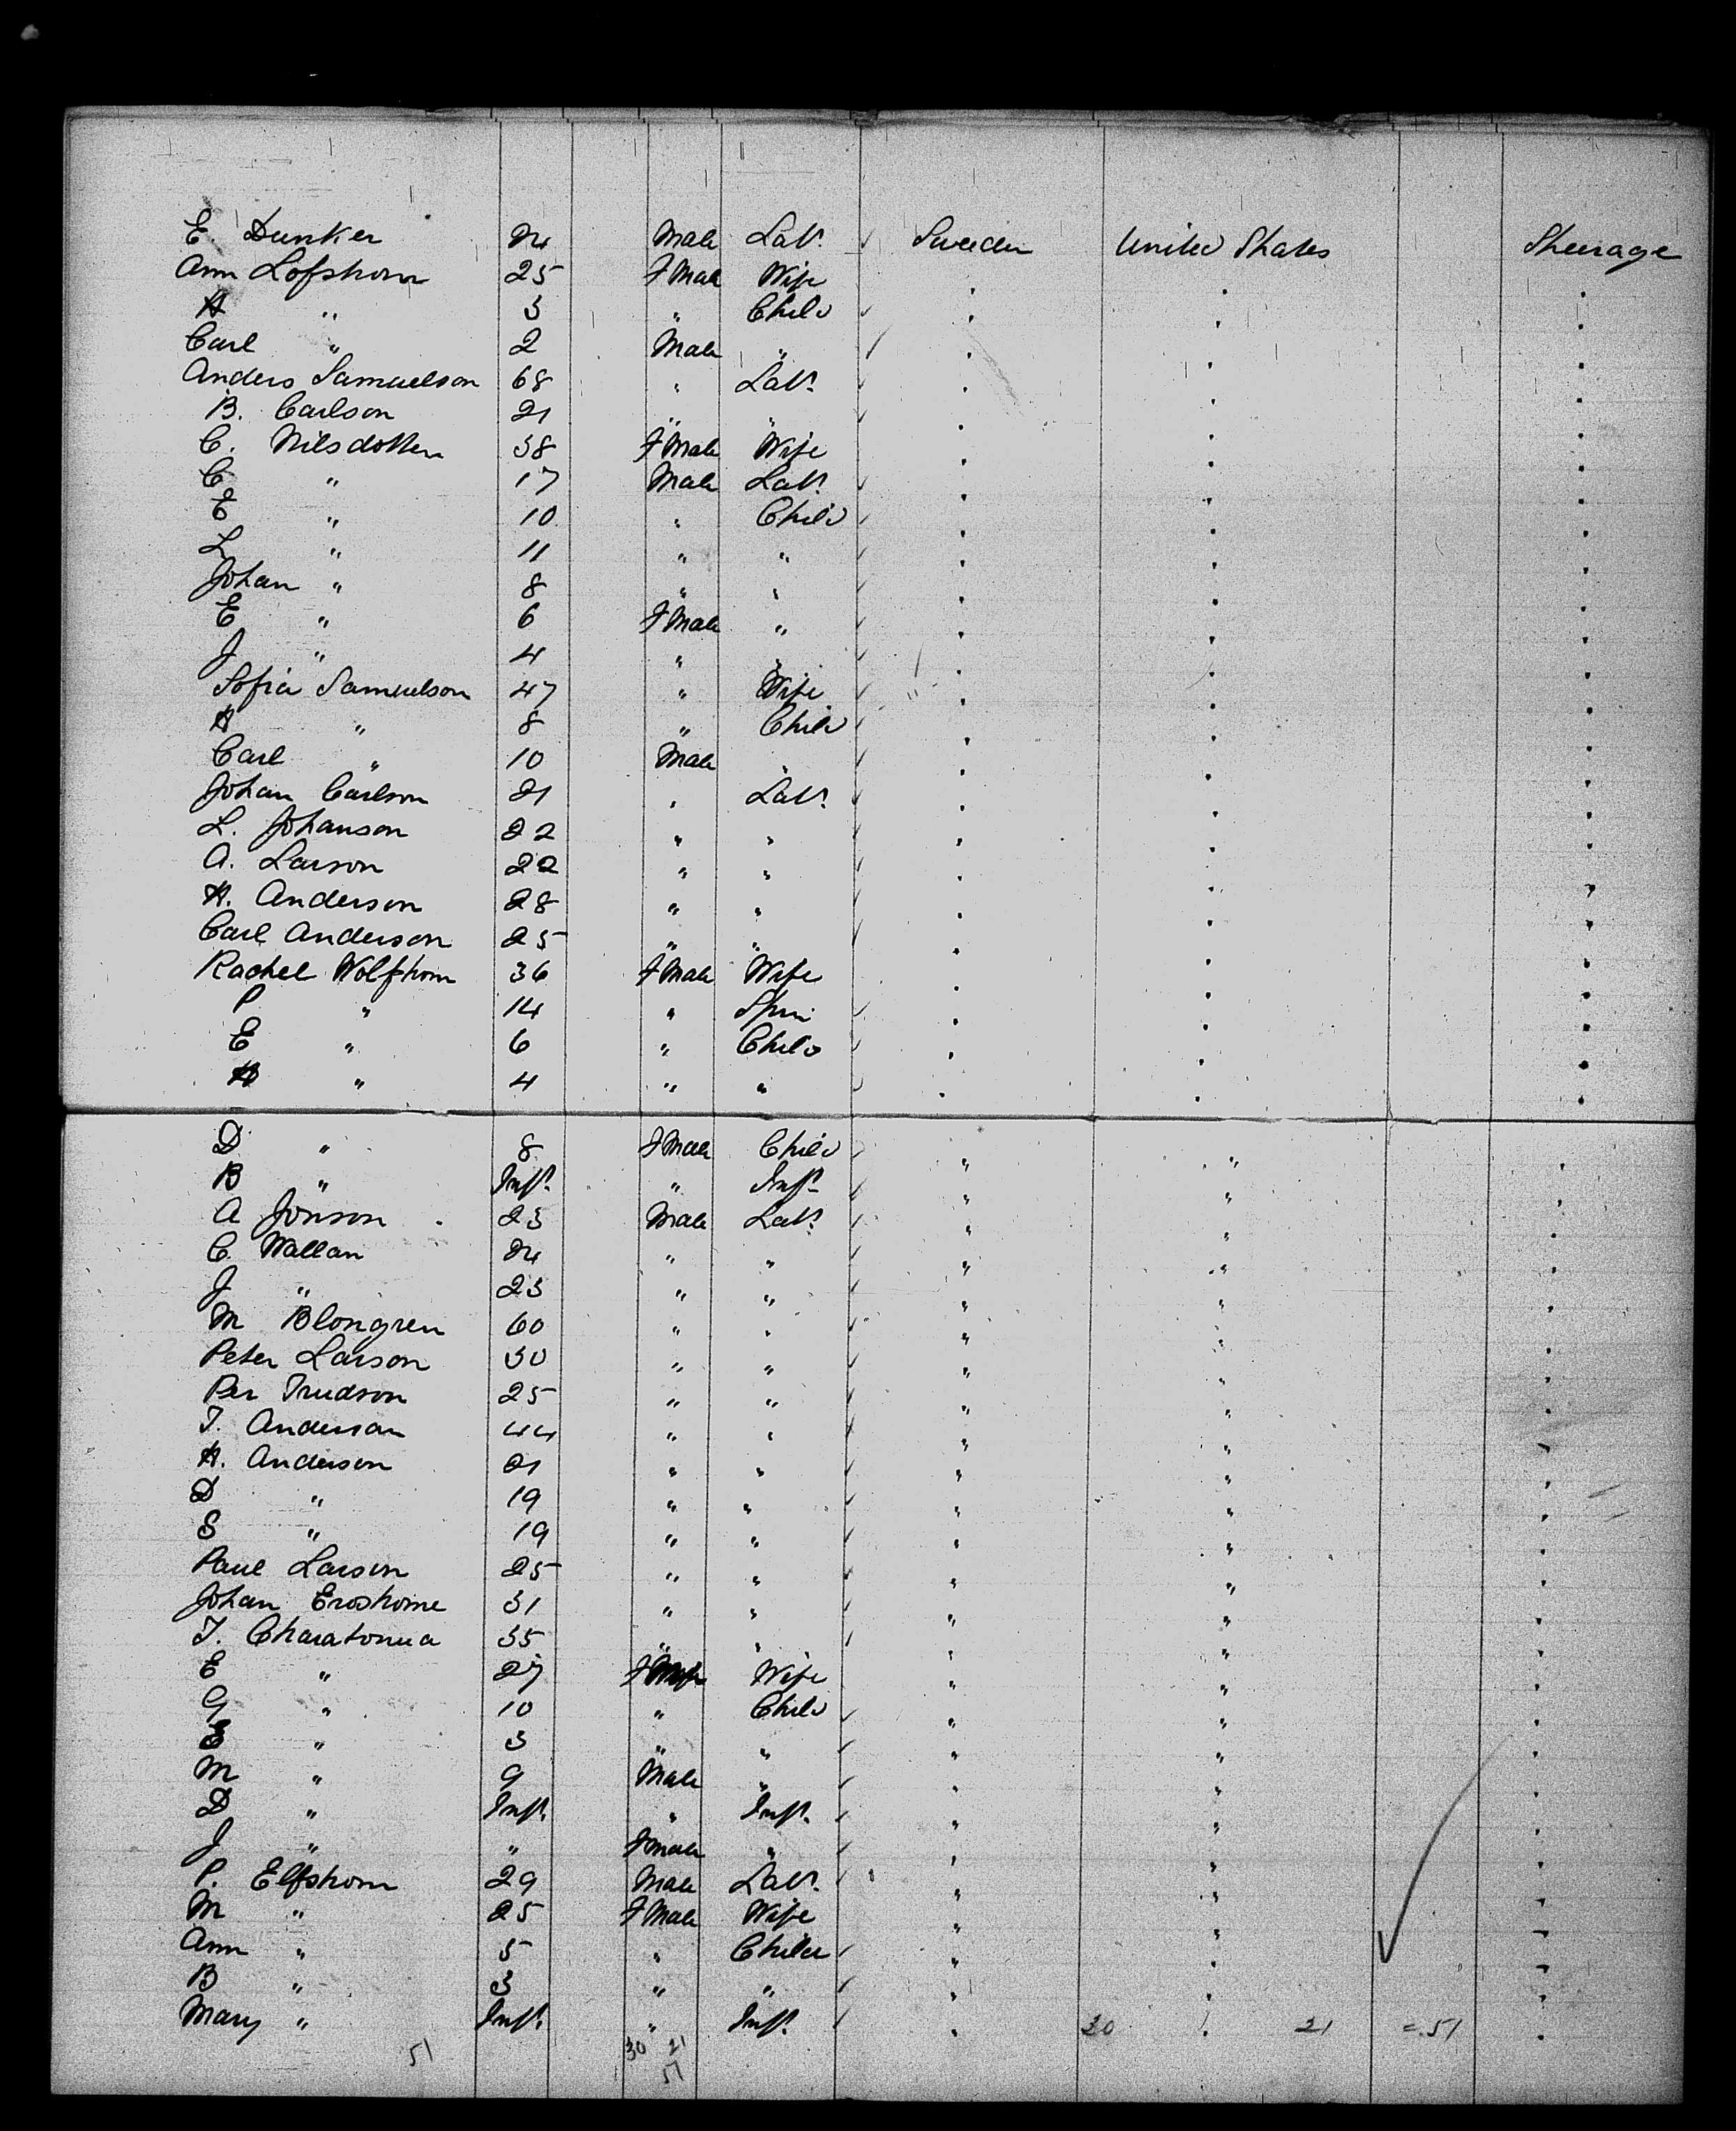 E. Dunker 24 Male Labr. Sweden United States Steerage
Ann Lofstrom 25 FMale Wife " " "
A " 3 " Child " " "
Carl " 2 Male " " " "
Anders Samuelson 68 " Labr. " " "
B. Carlson 21 " " " " "
C. Nilsdotter 38 FMale Wife " " "
C " 17 Male Labr. " " "
E " 10 " Child " " "
L " 11 " " " " "
Johan " 8 " " " " "
E " 6 FMale " " " "
J " 4 " " " " "
Sofia Samuelson 47 " Wife " " "
A " 8 " Child " " "
Carl " 10 Male " " " "
Johan Carlson 21 " Labr. " " "
L. Johanson 22 " " " " "
A. Larson 22 " " " " "
A. Anderson 28 " " " " "
Carl Anderson 25 " " " " "
Rachel Wolfstrom 36 FMale Wife " " "
P " 14 " Spin " " "
E " 6 " Child " " "
" 4 " " " " "
D " 8 FMale Child " " "
B " Inft. " Inft " " "
A Jonson 23 Male Labr. " " "
C. Wallan 24 " " " " "
J " 23 " " " " "
M Blongren 60 " " " " "
Peter Larson 30 " " " " "
Per Trudson 25 " " " " "
T. Anderson 44 " " " " "
A. Anderson 21 " " " " "
D " 19 " " " " "
S " 19 " " " " "
Paul Larson 25 " " " " "
Johan Erostrome 31 " " " " "
T. Charatonua 35 " " " " "
E " 27 Wife " " "
G " 10 " Child " " "
" 3 " " " " "
M " 9 Male " " " "
D " Inft. " Inft. " " "
J " " Fmale " " " "
P. Elfstrom 29 Male Labr. " " "
M " 25 FMale Wife " " "
Ann " 5 " Child " " "
B " 3 " " " " "
Mary " Inft. " Inft. " 30 " 21 = 51 "
51 30 21
51